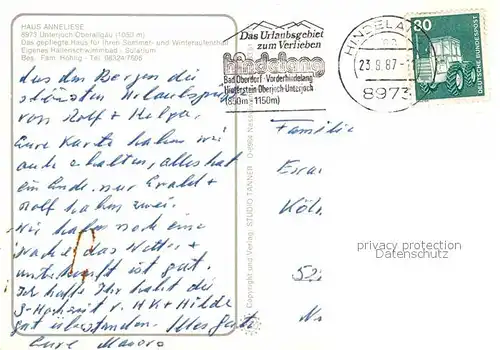 HAUS ANNELIESE
8973 Unterjoch Oberallgäu (1050 m)
Das gepflegte Haus für Ihren Sommer- und Winteraufenthalt
Eigenes Hallenschwimmbad · Solarium
Bes. Fam. Höhlig · Tel. 08324/7606
Aus den Bergen die
schönsten Urlaubsgrüße
von Rolf + Helga.
Eure Karte haben wir
auch erhalten, alles hat
ein Ende nur Ewald +
Rolf haben zwei.
Wir haben noch eine
Woche, das Wetter +
Unterkunft ist gut.
Ich hoffe Ihr habt die
S-Hochzeit v. HK + Hilde
gut überstanden. Alles Gute
Eure
Das Urlaubsgebiet
zum Verlieben
Hindelang
Bad Oberdorf · Vorderhindelang
Hinterstein · Oberjoch · Unterjoch
(850m - 1150m)
HINDELA
23.9.87
8973
80
DEUTSCHE BUNDESPOST
Familie
Köln
Copyright und Verlag: STUDIO TANNER
privacy protection
Datenschutz